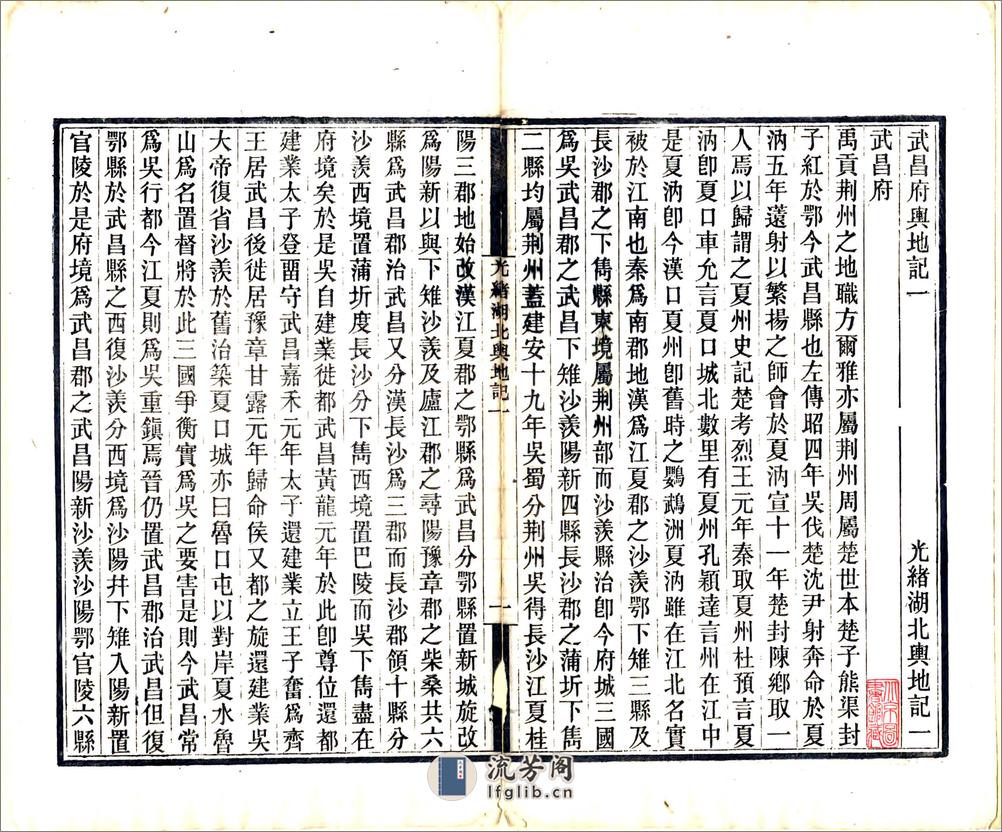 武昌府輿地記一 光緒湖北輿地記一
武昌府
禹貢荆州之地職方爾雅亦屬荆州周屬楚世本楚子熊渠封
子紅於鄂今武昌縣也左傳昭四年吳伐楚沈尹射奔命於夏
汭五年薳射以繁揚之師會於夏汭宣十一年楚封陳鄉取一
人焉以歸謂之夏州史記楚考烈王元年秦取夏州杜預言夏
汭卽夏口車允言夏口城北數里有夏州孔穎達言州在江中
是夏汭卽今漢口夏州卽舊時之鸚鵡洲夏汭雖在江北名實
被於江南也秦爲南郡地漢爲江夏郡之沙羨鄂下雉三縣及
長沙郡之下雋縣東境屬荆州部而沙羨縣治卽今府城三國
爲吳武昌郡之武昌下雉沙羨陽新四縣長沙郡之蒲圻下雋
二縣均屬荆州蓋建安十九年吳蜀分荆州吳得長沙江夏桂
光緒湖北輿地記一
一
陽三郡地始改漢江夏郡之鄂縣爲武昌分鄂縣置新城旋改
爲陽新以與下雉沙羨及廬江郡之尋陽豫章郡之柴桑共六
縣爲武昌郡治武昌又分漢長沙爲三郡而長沙郡領十縣分
沙羨西境置蒲圻度長沙分下雋西境置巴陵而吳下雋盡在
府境矣於是吳自建業徙都武昌黃龍元年於此卽尊位還都
建業太子登畱守武昌嘉禾元年太子還建業立王子奮爲齊
王居武昌後徙居豫章甘露元年歸命侯又都之旋還建業吳
大帝復省沙羨於舊治築夏口城亦曰魯口屯以對岸夏水魯
山爲名置督將於此三國爭衡實爲吳之要害是則今武昌常
爲吳行都今江夏則爲吳重鎮焉晉仍置武昌郡治武昌但復
鄂縣於武昌縣之西復沙羨分西境爲沙陽幷下雉入陽新置
官陵於是府境爲武昌郡之武昌陽新沙羨沙陽鄂官陵六縣
流芳阁
lfglib.cn